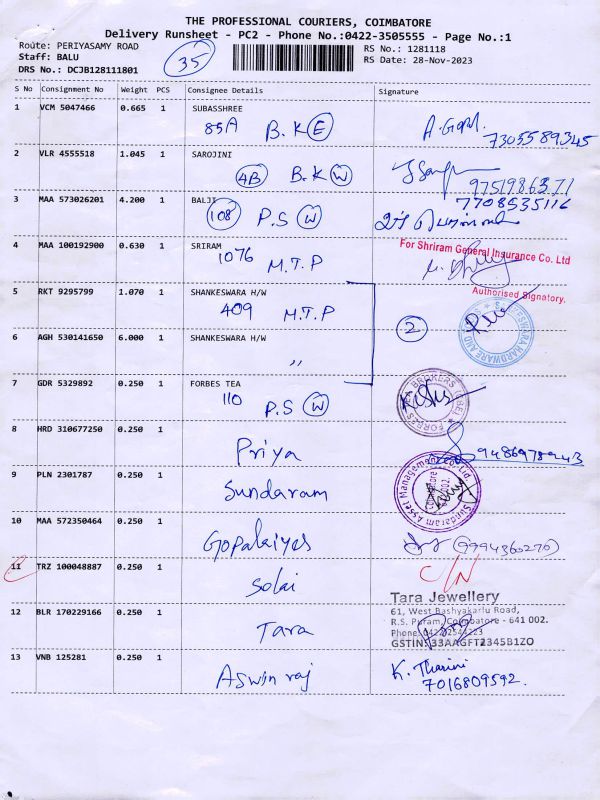 THE PROFESSIONAL COURIERS, COIMBATORE
Delivery Runsheet - PC2 - Phone No.:0422-3505555 - Page No.:1
Route: PERIYASAMY ROAD
RS No.: 1281118
Staff: BALU
35
RS Date: 28-Nov-2023
DRS No.: DCJB128111801
S No Consignment No Weight PCS Consignee Details Signature
1 VCM 5047466 0.665 1 SUBASSHREE
85A B.K E
7305589345
2 VLR 4555518 1.045 1 SAROJINI
4B B.K W
9751986371
3 MAA 573026201 4.200 1 BALJI
7708535116
108 P.S W
4 MAA 100192900 0.630 1 SRIRAM
1076 M.T.P
For Shriram General Insurance Co. Ltd
Authorised Signatory.
5 RKT 9295799 1.070 1 SHANKESWARA H/W
409 M.T.P
2
6 AGH 530141650 6.000 1 SHANKESWARA H/W
〃
7 GDR 5329892 0.250 1 FORBES TEA
110 P.S W
8 HRD 310677250 0.250 1
Priya
9486978943
9 PLN 2301787 0.250 1
Sundaram
Sundaram Asset Management Co Ltd
10 MAA 572350464 0.250 1
Gopalaiyes
(9994360270)
11 TRZ 100048887 0.250 1
Solai
C/N
12 BLR 170229166 0.250 1
Tara
Tara Jewellery
61, West Bashyakarlu Road,
R.S. Puram, Coimbatore - 641 002.
Phone:
GSTIN: 33AAGFT2345B1ZO
13 VNB 125281 0.250 1
Aswin raj
K. Tharini
7016809592.